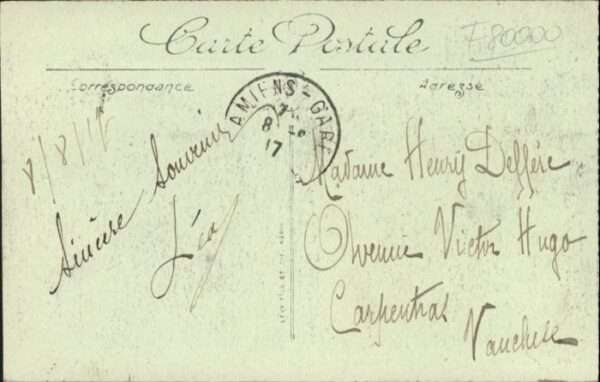 Carte Postale
F80000
Correspondance
Adresse
AMIENS - GARE
8
17
8/8/17
Sincère Souvenir
Léa
Madame Henry Deffère
Avenue Victor Hugo
Carpentras
Vaucluse